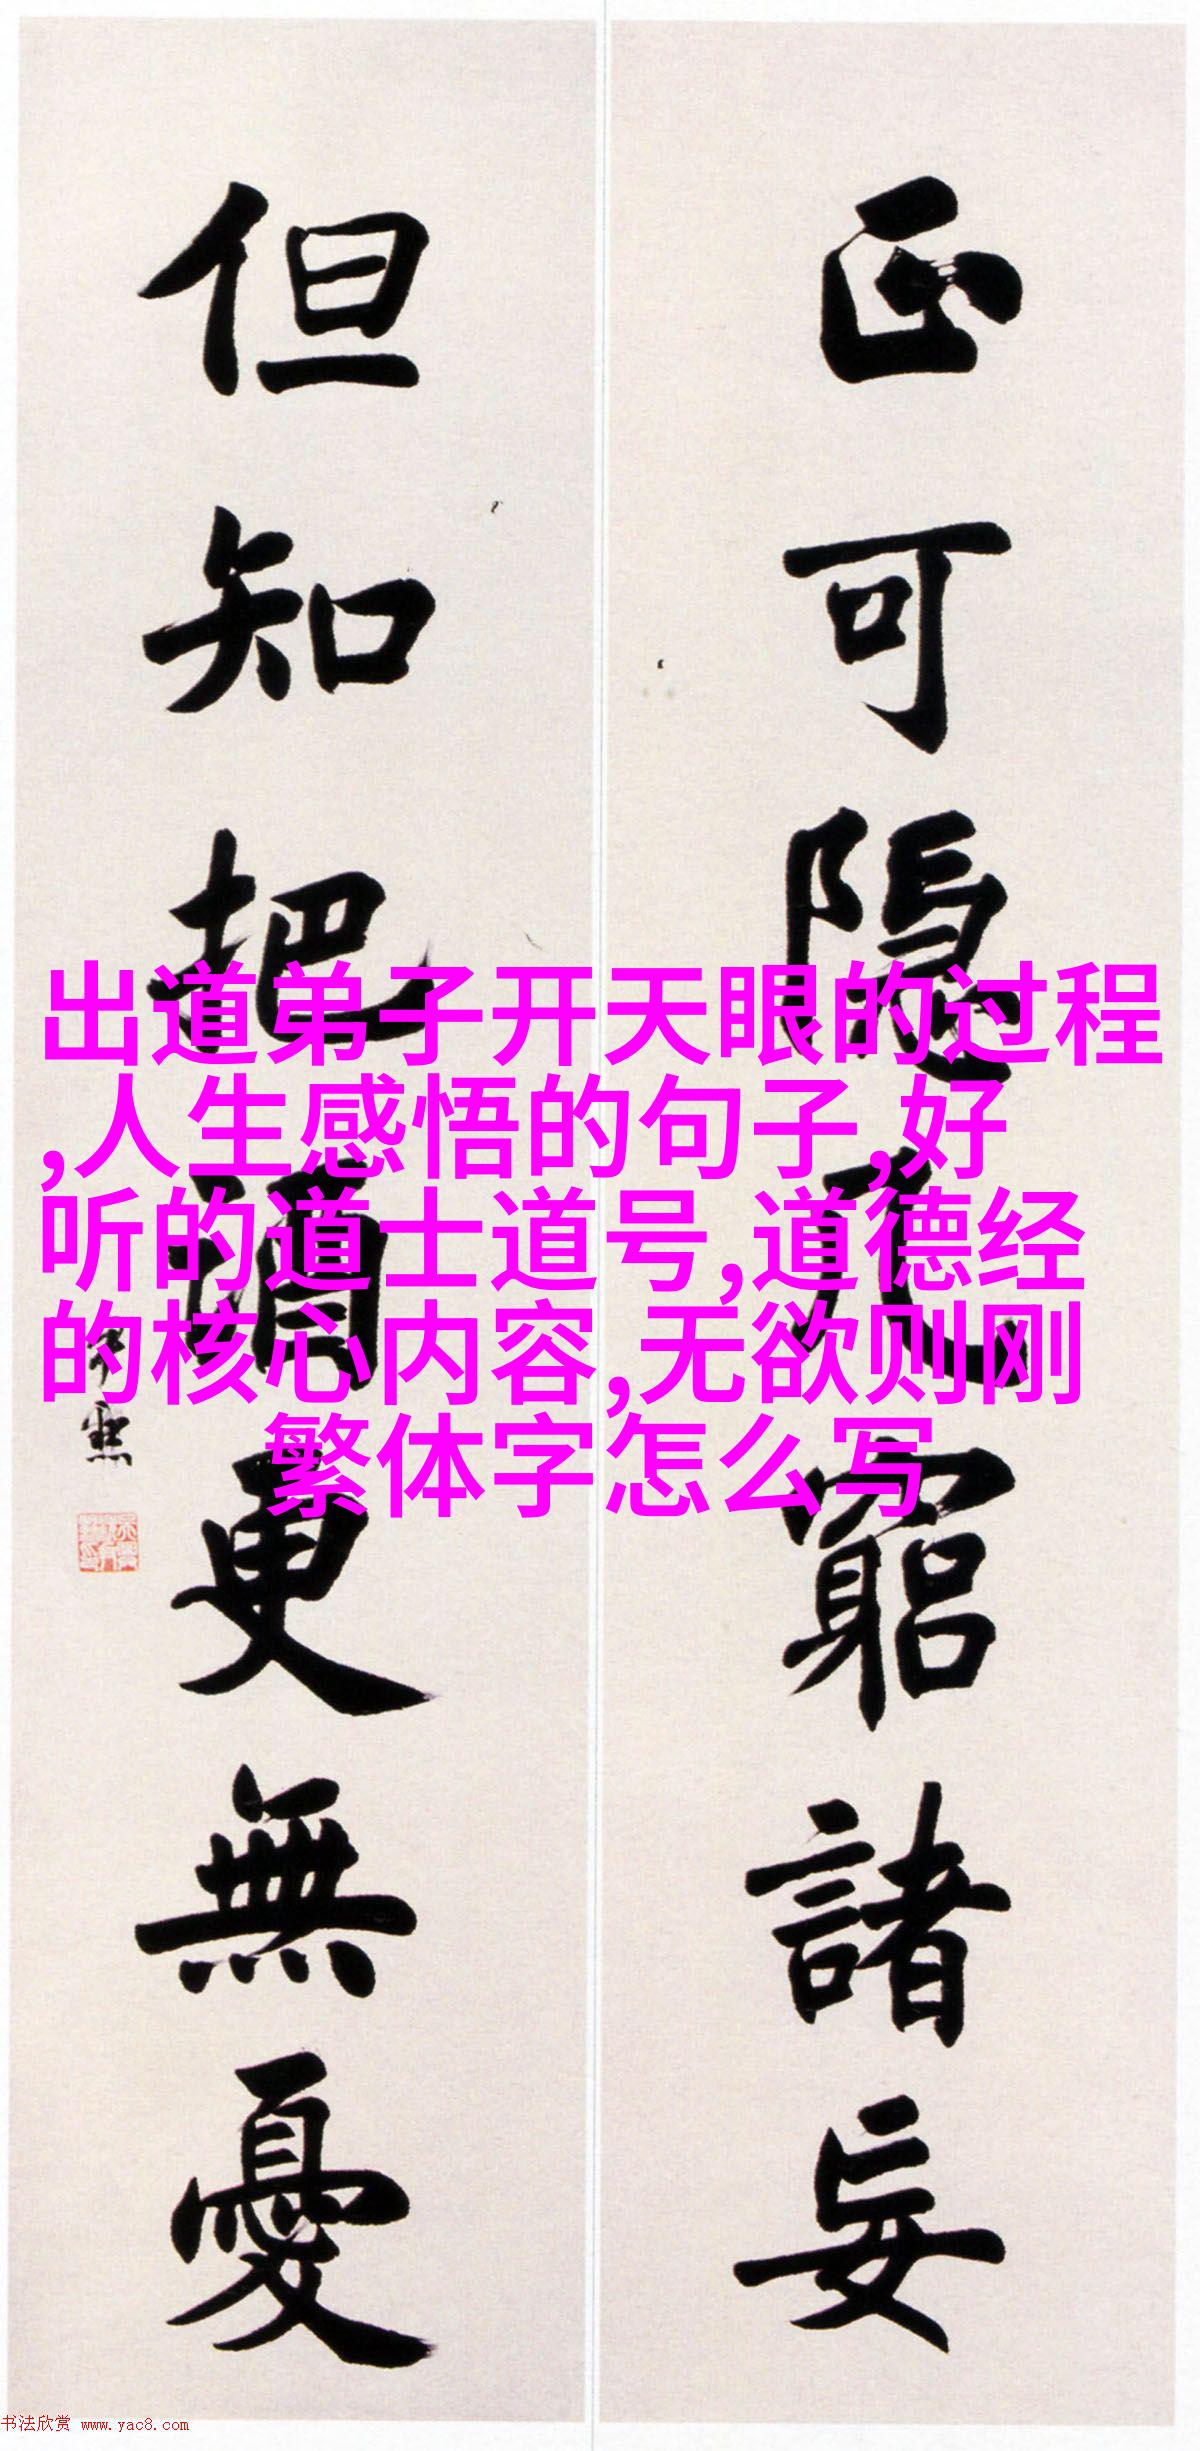 正可隱几窮諸妄
但知把酒更無憂
出道弟子开天眼的过程
,人生感悟的句子,好
听的道士道号,道德经
的核心内容,无欲则刚
繁体字怎么写
书法欣赏 www.yac8.com